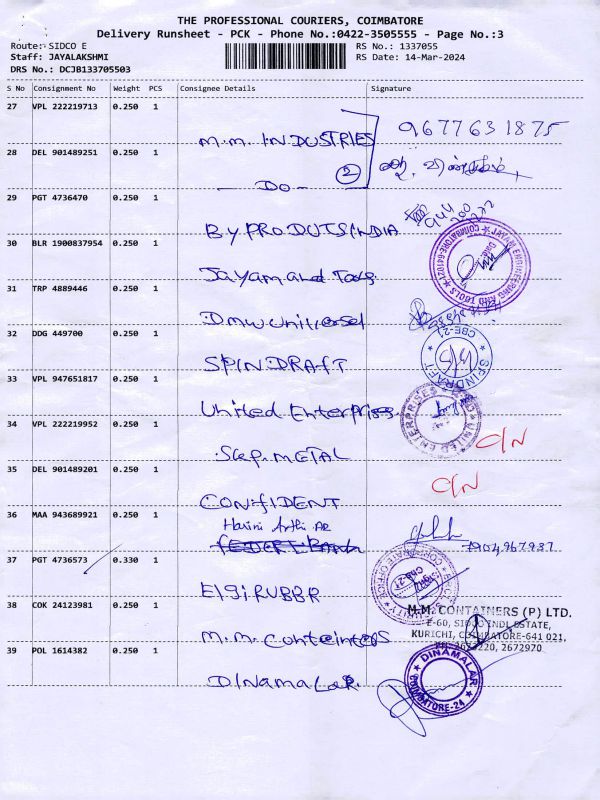 THE PROFESSIONAL COURIERS, COIMBATORE
Delivery Runsheet - PCK - Phone No.:0422-3505555 - Page No.:3
Route: SIDCO E RS No.: 1337055
Staff: JAYALAKSHMI RS Date: 14-Mar-2024
DRS No.: DCJB133705503
S No Consignment No Weight PCS Consignee Details Signature
27 VPL 222219713 0.250 1 M.M. INDUSTRIES 9677631875
28 DEL 901489251 0.250 1 — DO — 2
29 PGT 4736470 0.250 1 BYPRODUTSINDIA
30 BLR 1900837954 0.250 1 Jayam and Tools JAYAM ENGINEERING AND TOOLS COIMBATORE-641021
31 TRP 4889446 0.250 1 Dmw universel
32 DDG 449700 0.250 1 SPINDRAFT SPINDRAFT CBE-21
33 VPL 947651817 0.250 1 United Enterprises UNITED ENTERPRISES
34 VPL 222219952 0.250 1 METAL C/N
35 DEL 901489201 0.250 1 CONFIDENT C/N
36 MAA 943689921 0.250 1 Harini Arthi AR
37 PGT 4736573 0.330 1 ElgiRUBBR
38 COK 24123981 0.250 1 M.M. Conteiners
M.M. CONTAINERS (P) LTD.
E-60, SIDCO INDL ESTATE,
KURICHI, COIMBATORE-641 021,
2673220, 2672970
39 POL 1614382 0.250 1 Dinamalar. DINAMALAR COIMBATORE-24